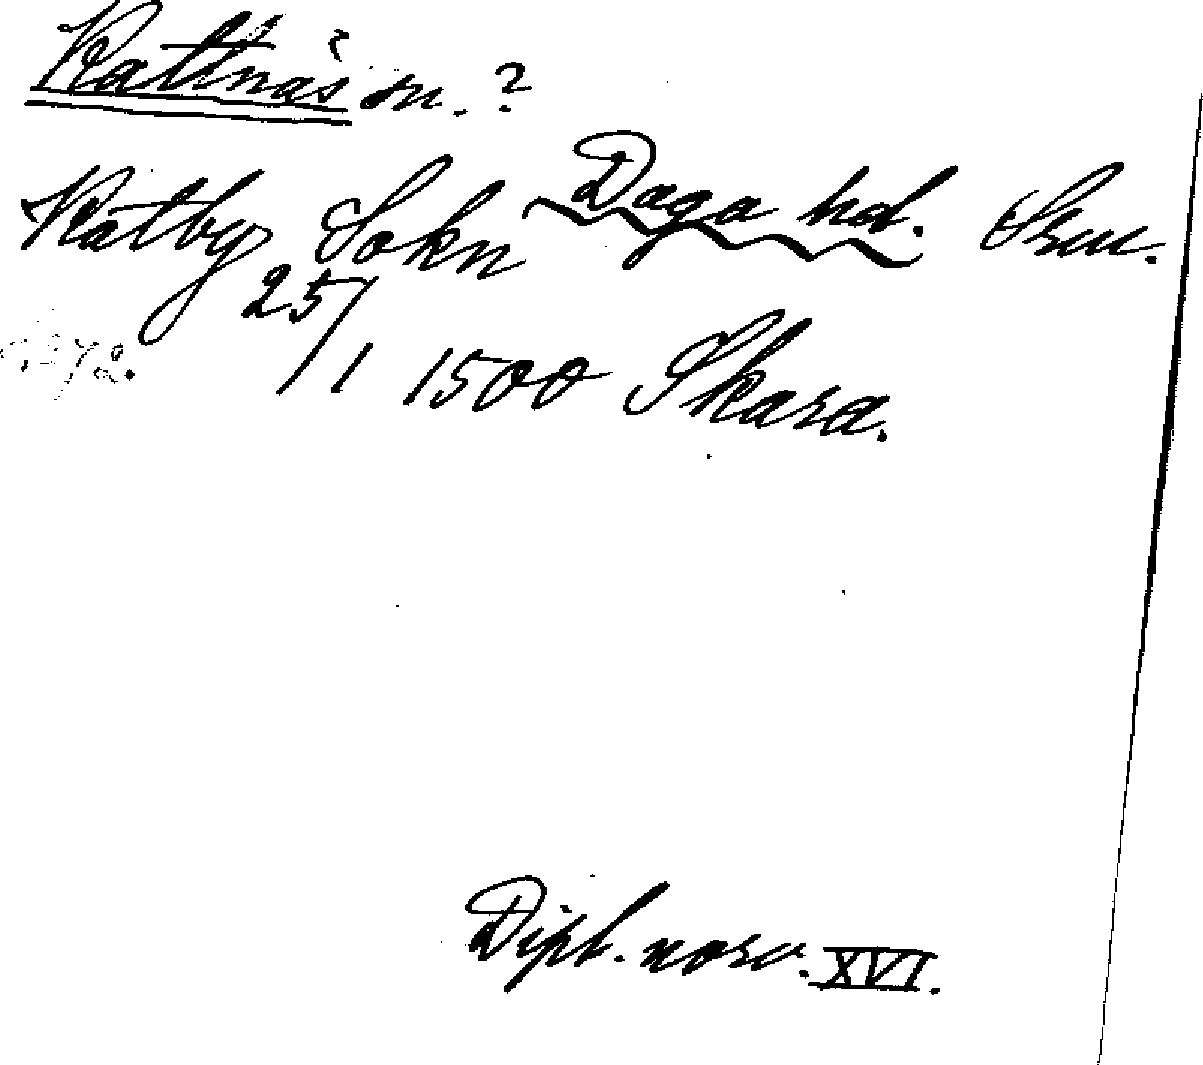 Kattnäs sn. ?
Katby Sokn Daga hd. Srm.
25/1 1500 Skara.
Dipl. norv. XVI.